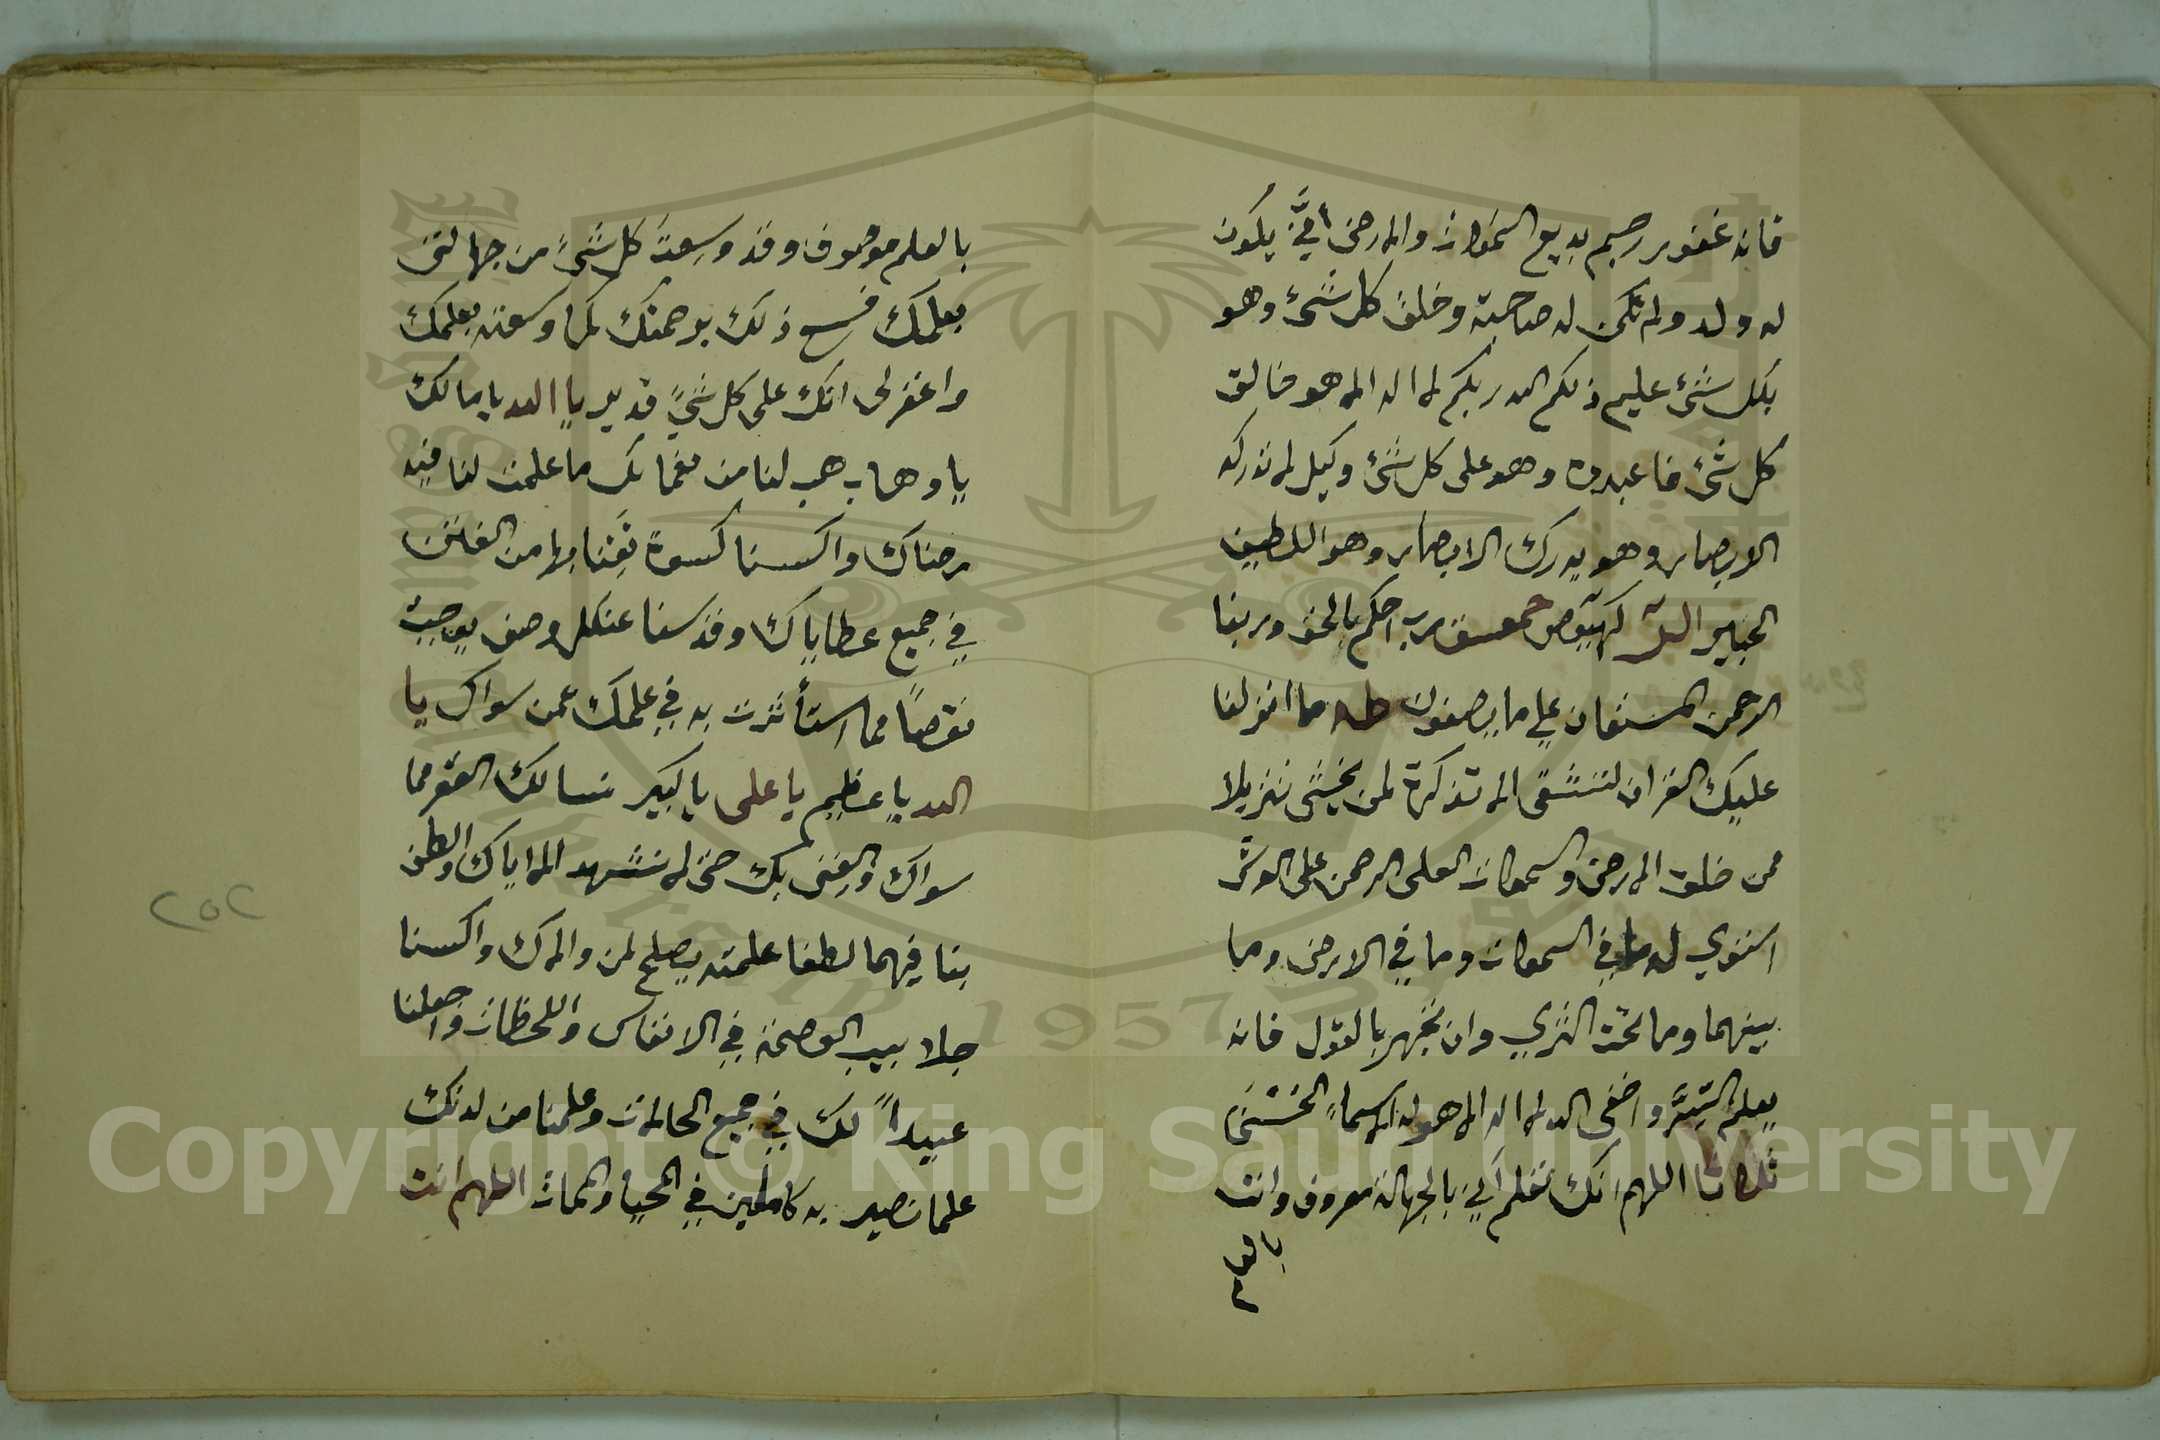 فانه غفور رحيم بديع السموات والارض أَنَّى يكُون
له ولد ولم تكن له صاحبة وخلق كل شئ وهو
بكل شئ عليم ذلكم الله ربكم لا اله الا هو خالق
كل شئ فاعبدوه وهو على كل شئ وكيل لا تدركه
الابصار وهو يدرك الابصار وهو اللطيف
الخبير الر كهيعص حمعسق رب احكم بالحق وربنا
الرحمن المستعان على ما يصفون طه ما انزلنا
عليك القران لتشقى الا تذكرة لمن يخشى تنزيلا
ممن خلق الارض والسموات العلى الرحمن على العرش
استوي له ما في السموات وما في الارض وما
بينهما وما تحت الثري وان تجهر بالقول فانه
يعلم السِّرَّ واخفى الله لا اله الا هو له الاسماء الحُسْنَى
ثلاثا اللهم انك تعلم أني بالجهالة معروف وانت
بالعلم
بالعلم موصوف وقد وسِعتَ كل شئ من جهالتى
بعلمك فسع ذلك برحمتك كما وسعته بعلمك
واغفر لى انك على كل شئ قدير يا الله يا مالك
يا وهاب هب لنا من نعمائك ما علمت لنا فيه
رضاك واكسنا كسوة تَقِنا بها من الفتن
في جميع عطاياك وقدسنا عن كل وصف يوجب
نقصاً مما استأثرت به في علمك عمن سواك يا
الله يا عظيم يا على يا كبير نسالك الفقر مما
سواك والغِنى بك حتى لا نشهد الا اياك والطف
بنا فيهما لطفا علمته يصلح لمن والاك واكسنا
جلابيب العصمة في الانفاس واللحظات واجعلنا
عبيداً لك في جميع الحالات وعلمنا من لدنك
علما نصير به كاملين في المحيا والممات اللهم انت
٢٥٢
Copyright © King Saud University
1957